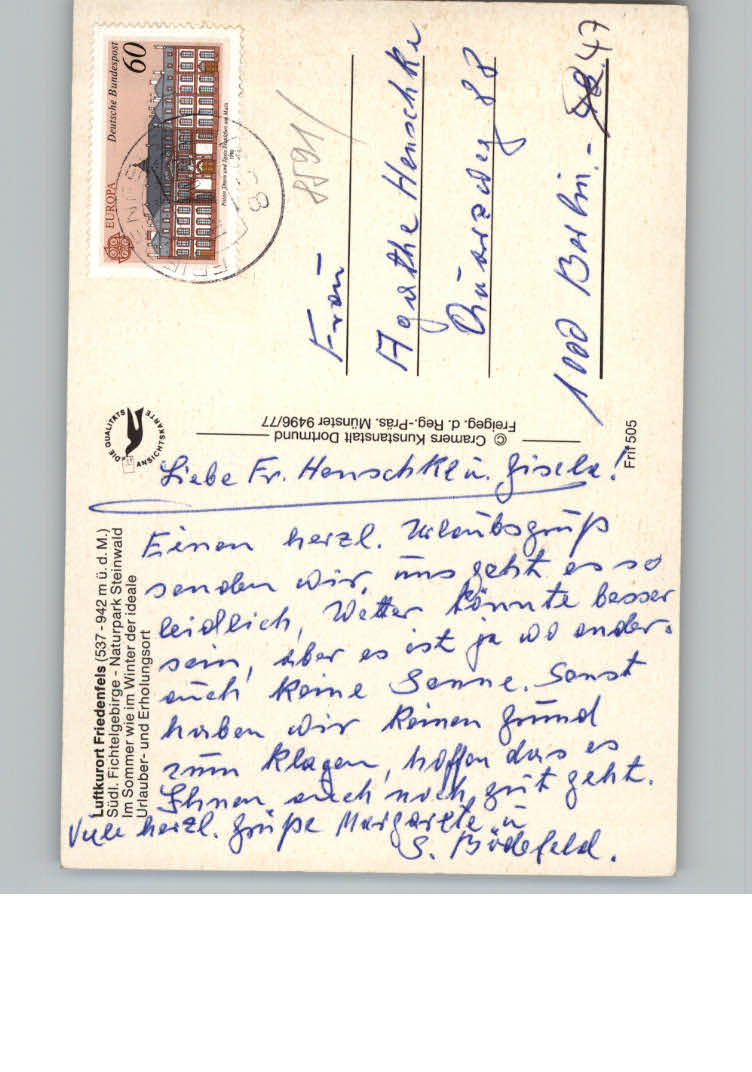 Luftkurort Friedenfels (537-942 m ü. d. M.)
Südl. Fichtelgebirge - Naturpark Steinwald
Im Sommer wie im Winter der ideale
Urlauber- und Erholungsort
Liebe Fr. Henschke u. Gisela!
Einen herzl. Urlaubsgruß
senden wir, uns geht es so
leidlich, Wetter könnte besser
sein, aber es ist ja wo anders
auch keine Sonne. Sonst
haben wir keinen Grund
zum Klagen, hoffen das es
Ihnen auch noch gut geht.
Viele herzl. Grüße Margarete u
S. Bödefeld.
DIE QUALITÄTS
ANSICHTSKARTE
© Cramers Kunstanstalt Dortmund
Freigeg. d. Reg.-Präs. Münster 9496/77
Frif 505
EUROPA
Deutsche Bundespost
60
1990
8591/
88
Frau
Agathe Henschke
Quarzweg 88
1000 Berlin.- 47